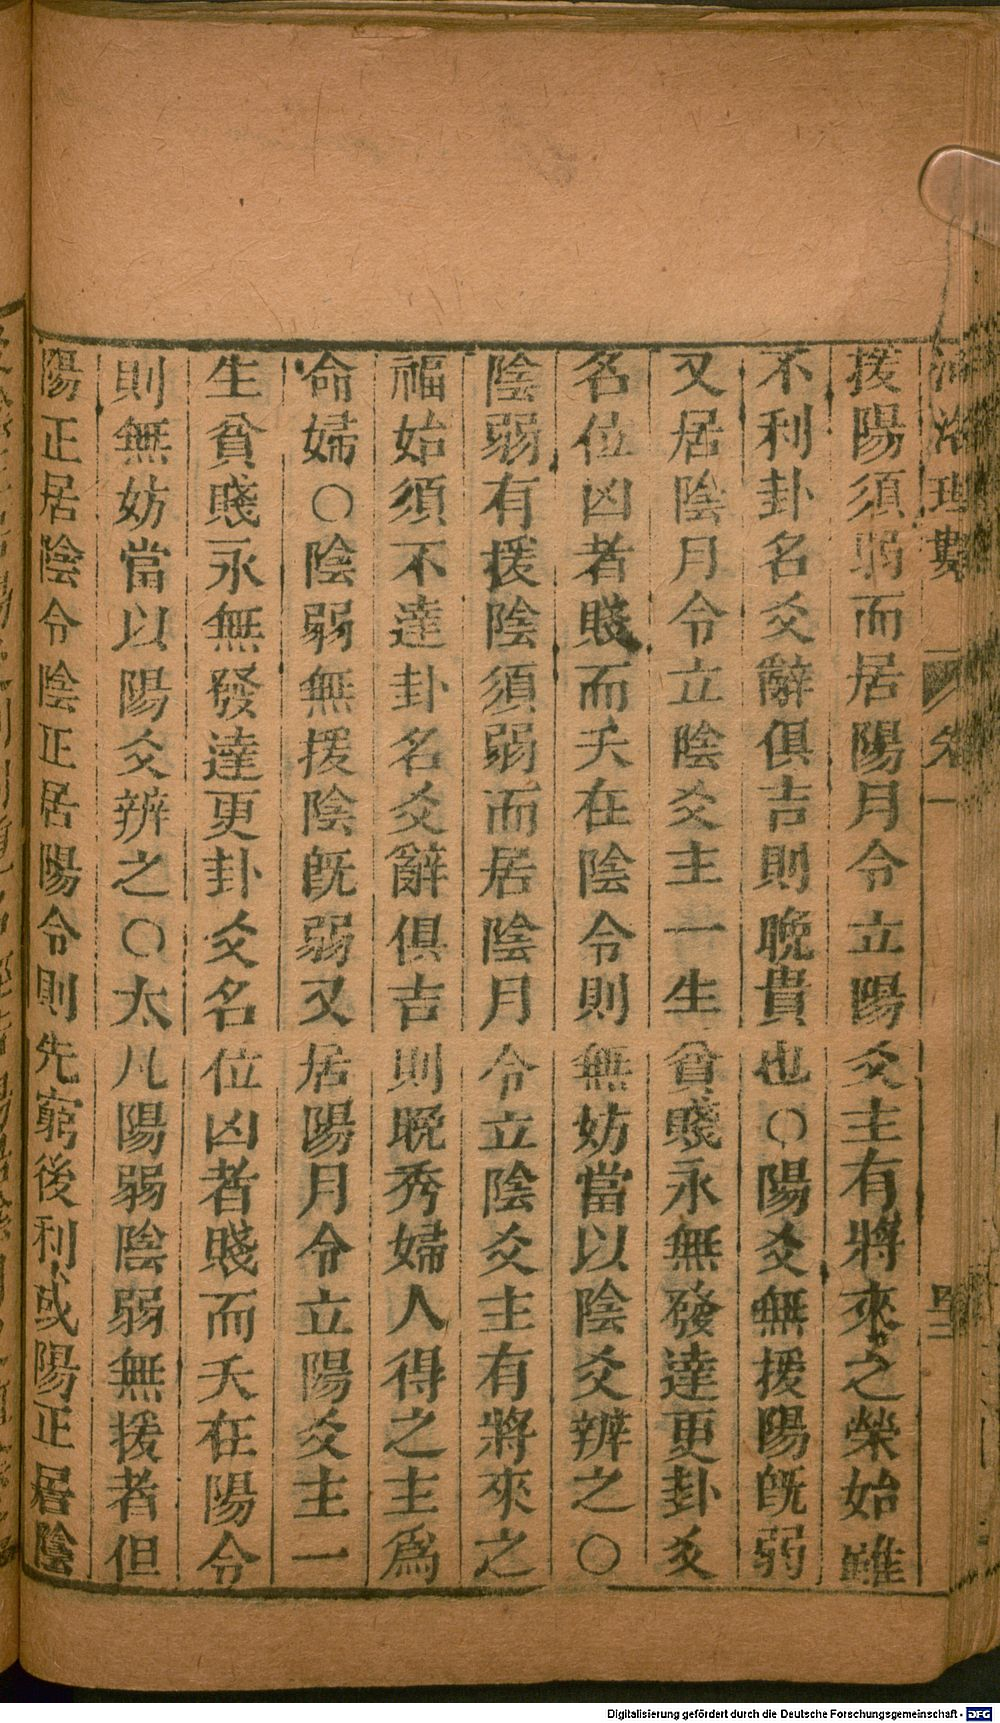 河洛理數 卷一
援陽須弱而居陽月令立陽爻主有將來之榮始雖
不利卦名爻辭俱吉則晚貴也○陽爻無援陽旣弱
又居陰月令立陰爻主一生貧賤永無發達更卦爻
名位凶者賤而夭在陰令則無妨當以陰爻辨之○
陰弱有援陰須弱而居陰月令立陰爻主有將來之
福始須不達卦名爻辭俱吉則晚秀婦人得之主爲
命婦○陰弱無援陰旣弱又居陽月令立陽爻主一
生貧賤永無發達更卦爻名位凶者賤而夭在陽令
則無妨當以陽爻辨之○太凡陽弱陰弱無援者但
陽正居陰令陰正居陽令則先窮後利或陽正居陰
Digitalisierung gefördert durch die Deutsche Forschungsgemeinschaft - DFG